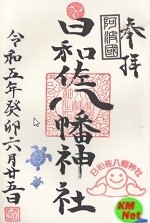 奉拝
阿波國
日和佐八幡神社
令和五年癸卯六月廿五日
日和佐八幡神社
KM
Net